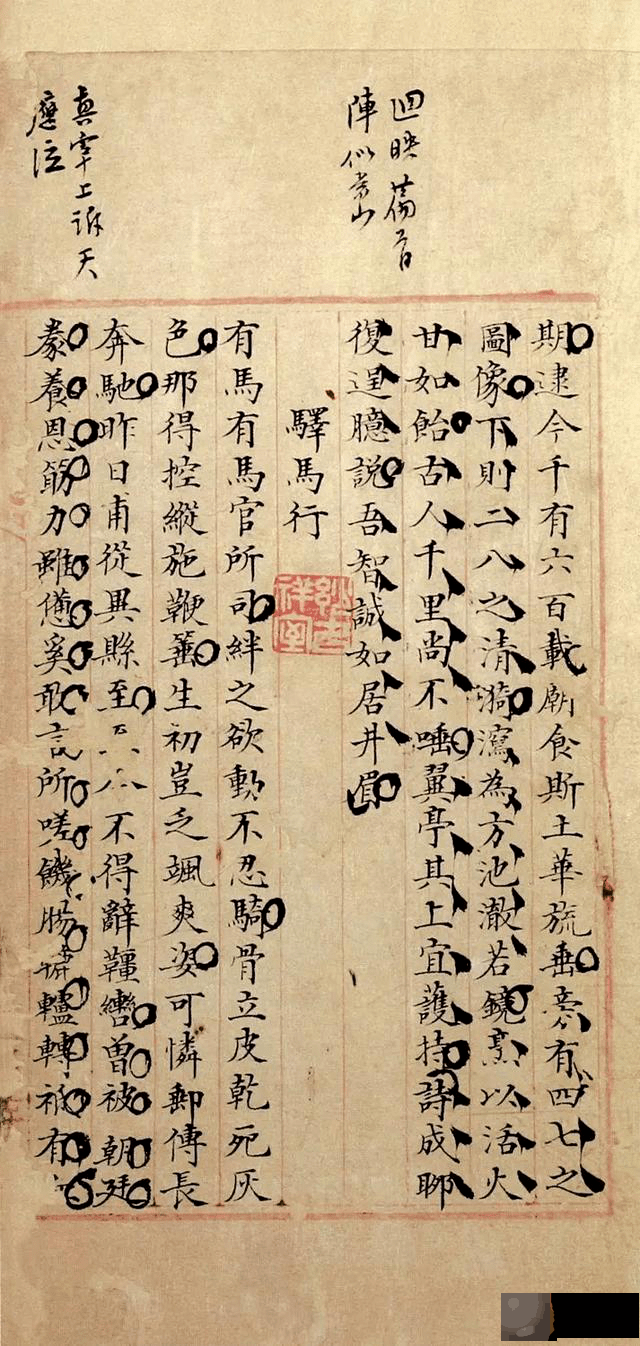 迴映萬首
陣似常山
真宰上訴天
應泣
期逮今千有六百載廟食斯土華旒垂旁有四七之
圖像下則二八之清漪瀉為方池澈若鏡烹以活火
甘如飴古人千里尚不唾翼亭其上宜護持詩成聊
復逞臆説吾智誠如居井眉
驛馬行
有馬有馬官所司絆之欲動不忍騎骨立皮乾死灰
色那得控縱施鞭箠生初豈乏颯爽姿可憐郵傳長
奔馳昨日甫從異縣至不得辭韁轡曾被朝廷
豢養恩筋力雖憊奚敢言所嗟饑腸轆轤轉祇有